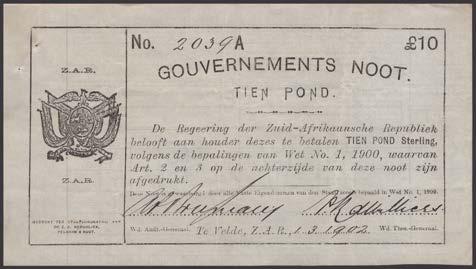 No. 2039A £10
GOUVERNEMENTS NOOT.
TIEN POND.
Z.A.R.
De Regeering der Zuid-Afrikaansche Republiek
belooft aan houder dezes te betalen TIEN POND Sterling,
volgens de bepalingen van Wet No. 1, 1900, waarvan
Art. 2 en 3 op de achterzijde van deze noot zijn
afgedrukt.
Z.A.R.
Deze Noot is gewaarborgd door alle vaste Eigendommen van den Staat zooals bepaald in Wet No. 1, 1900.
Wd. Audt.-Generaal. Te Velde, Z.A.R., 1.3.1902 Wd. Thes.-Generaal.
GEDRUKT TER STAATSDRUKKERIJ
DE Z. A. REPUBLIEK,